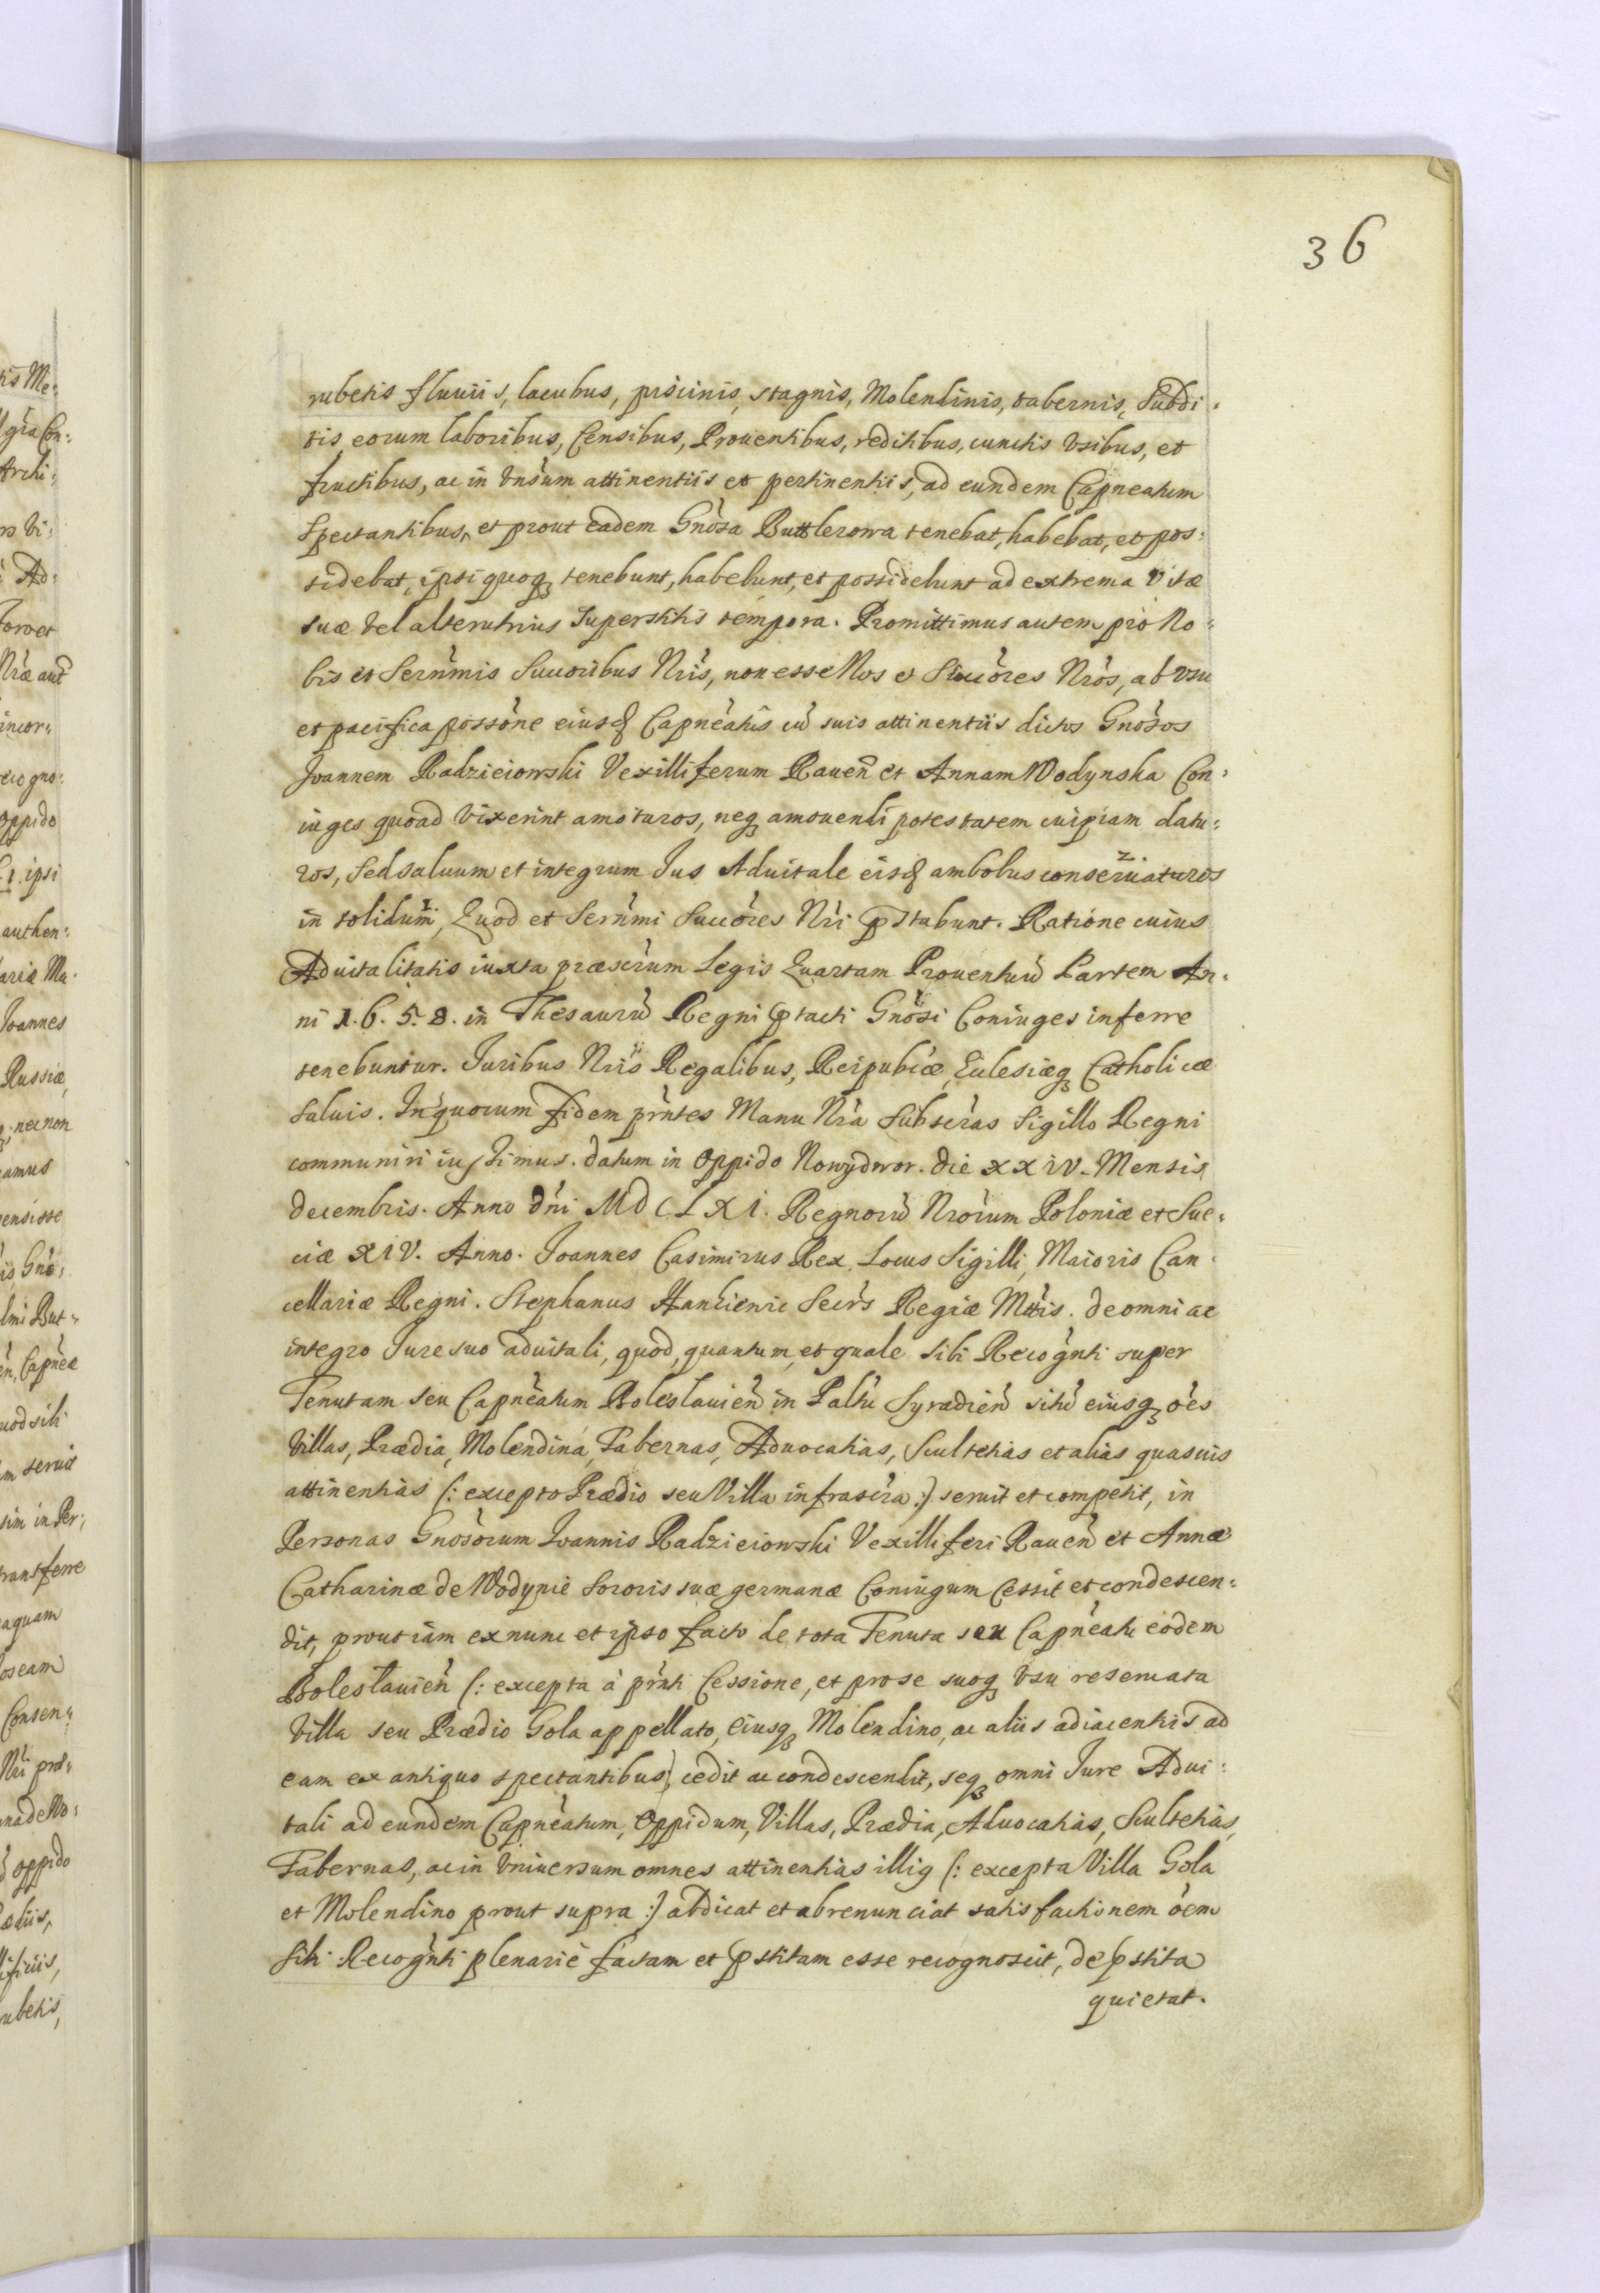 36
rubetis fluviis, lacubus, piscinis, stagnis, Molendinis, tabernis, Subdi:
tis eorum laboribus, Censibus, Prouentibus, reditibus, cunctis vsibus, et
fructibus, ac in Vnsum attinentiis et pertinentiis, ad eundem Capneatum
Spectantibus, et prout eadem Gnosa Buttlerowa tenebat, habebat, et pos:
sidebat, ipsi quoq tenebunt, habebunt, et possidebunt ad extrema vitæ
suæ vel alterutrius superstitis tempora. Promittimus autem pro No:
bis et Sernmis Succoribus Nris, non esse Nos et Succores Nros, ab vsu
et pacifica possone eiusd Capneatus cu suis attinentiis dictos Gnosos
Joannem Radzieiowski Vexilliferum Rauen et Annam Wodynska Con:
iuges quoad vixerint amoturos, neq amouendi potestatem cuipiam datu:
ros, sed saluum et integrum Jus Aduitale eisd ambobus conseruaturos
in solidum, Quod et Sernmi Succores Nri pstabunt. Ratione cuius
Aduitalitatis iuxta præscrum Legis Quartam Prouentuu Partem An:
ni 1.6.5.8. in Thesauru Regni ptacti Gnosi Coniuges inferre
tenebuntur. Juribus Nris Regalibus, Reipubcæ, Eclesiæq Catholicæ
saluis. In quorum fidem prntes Manu Nra subscras Sigillo Regni
communiri iussimus. datum in Oppido Nowydwor. die XXIV. Mensis
decembris. Anno dni MDCLXI. Regnoru Nrorum Poloniæ et Sue:
ciæ XIV. Anno. Joannes Casimirus Rex. Locus Sigilli, Maioris Can:
cellariæ Regni. Stephanus Hankiewic Secrs Regiæ Mttis. de omni ac
integro Jure suo aduitali, quod, quantum, et quale sibi Recognti super
Tenutam seu Capneatum Boleslauien in Paltu Syradien situ eiusq oes
Villas, Prædia, Molendina, Tabernas, Aduocatias, Scultetias et alias quasuis
attinentias (: excepto Prædio seu Villa infrascra :) seruit et competit, in
Personas Gnosorum Joannis Radzieiowski Vexilliferi Rauen et Annæ
Catharinæ de Wodynie sororis suæ germanæ Coniugum Cessit et condescen:
dit, prout iam ex nunc et ipso facto de tota Tenuta seu Capneatu eodem
Boleslauien (: excepta à prnti Cessione, et pro se suoq vsu reseruata
Villa seu Prædio Gola appellato, eiusq Molendino, ac aliis adiacentiis ad
eam ex antiquo spectantibus) cedit ac condescendit, seq omni Jure Adui:
tali ad eundem Capneatum, Oppidum, Villas, Prædia, Aduocatias, Scultetias,
Tabernas, ac in Vniuersum omnes attinentias illig (: excepta Villa Gola
et Molendino prout supra :) abdicat et abrenunciat satisfactionem oem
sibi Recognti plenarie factam et pstitam esse recognoscit, de pstita
quietat.